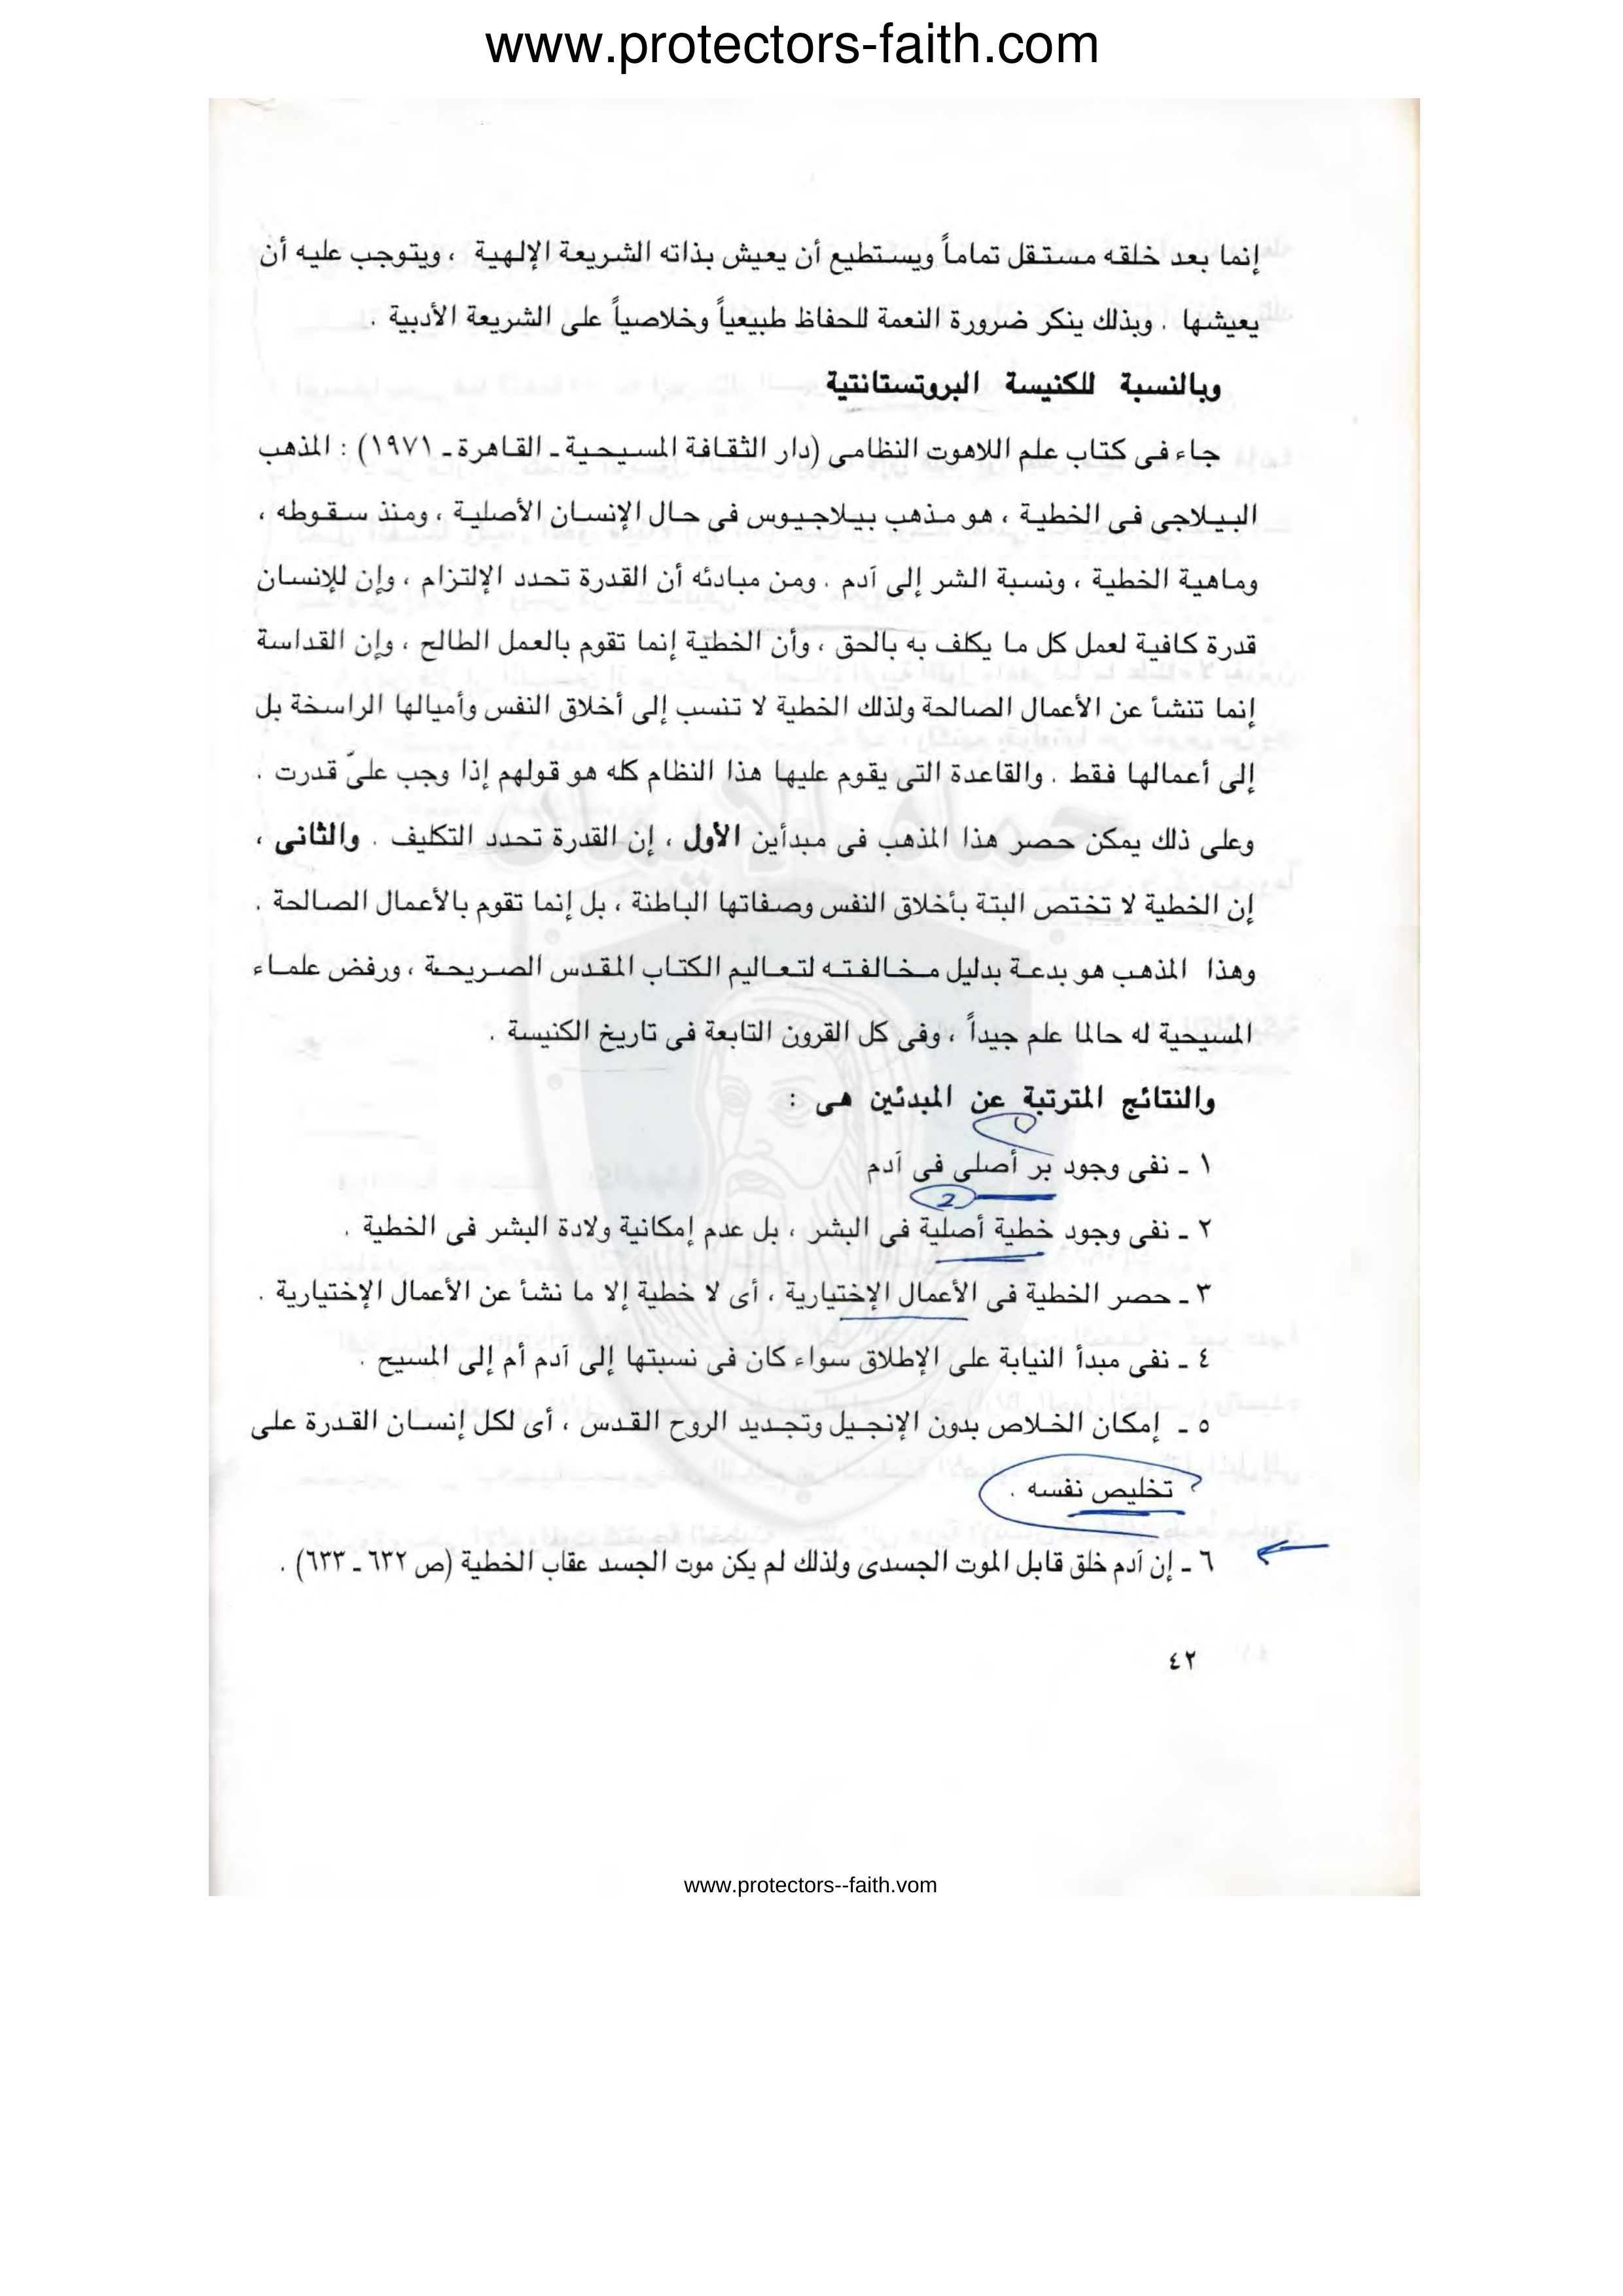 www.protectors-faith.com
إنما بعد خلقه مستقل تماماً ويستطيع أن يعيش بذاته الشريعة الإلهية ، ويتوجب عليه أن
يعيشها . وبذلك ينكر ضرورة النعمة للحفاظ طبيعياً وخلاصياً على الشريعة الأدبية .
وبالنسبة للكنيسة البروتستانتية
جاء فى كتاب علم اللاهوت النظامى (دار الثقافة المسيحية ـ القاهرة ـ ١٩٧١) : المذهب
البيلاجى فى الخطية ، هو مذهب بيلاجيوس فى حال الإنسان الأصلية ، ومنذ سقوطه ،
وماهية الخطية ، ونسبة الشر إلى آدم . ومن مبادئه أن القدرة تحدد الإلتزام ، وإن للإنسان
قدرة كافية لعمل كل ما يكلف به بالحق ، وأن الخطية إنما تقوم بالعمل الطالح ، وإن القداسة
إنما تنشأ عن الأعمال الصالحة ولذلك الخطية لا تنسب إلى أخلاق النفس وأميالها الراسخة بل
إلى أعمالها فقط . والقاعدة التى يقوم عليها هذا النظام كله هو قولهم إذا وجب علىّ قدرت .
وعلى ذلك يمكن حصر هذا المذهب فى مبدأين الأول ، إن القدرة تحدد التكليف . والثانى ،
إن الخطية لا تختص البتة بأخلاق النفس وصفاتها الباطنة ، بل إنما تقوم بالأعمال الصالحة .
وهذا المذهب هو بدعة بدليل مخالفته لتعاليم الكتاب المقدس الصريحة ، ورفض علماء
المسيحية له حالما علم جيداً ، وفى كل القرون التابعة فى تاريخ الكنيسة .
والنتائج المترتبة عن المبدئين هى :
١ ـ نفى وجود بر أصلى فى آدم
2
٢ ـ نفى وجود خطية أصلية فى البشر ، بل عدم إمكانية ولادة البشر فى الخطية .
٣ ـ حصر الخطية فى الأعمال الإختيارية ، أى لا خطية إلا ما نشأ عن الأعمال الإختيارية .
٤ ـ نفى مبدأ النيابة على الإطلاق سواء كان فى نسبتها إلى آدم أم إلى المسيح .
٥ ـ إمكان الخلاص بدون الإنجيل وتجديد الروح القدس ، أى لكل إنسان القدرة على
تخليص نفسه .
٦ ـ إن آدم خلق قابل الموت الجسدى ولذلك لم يكن موت الجسد عقاب الخطية (ص ٦٣٢ ـ ٦٣٣) .
٤٢
www.protectors--faith.vom
حماة الإيمان